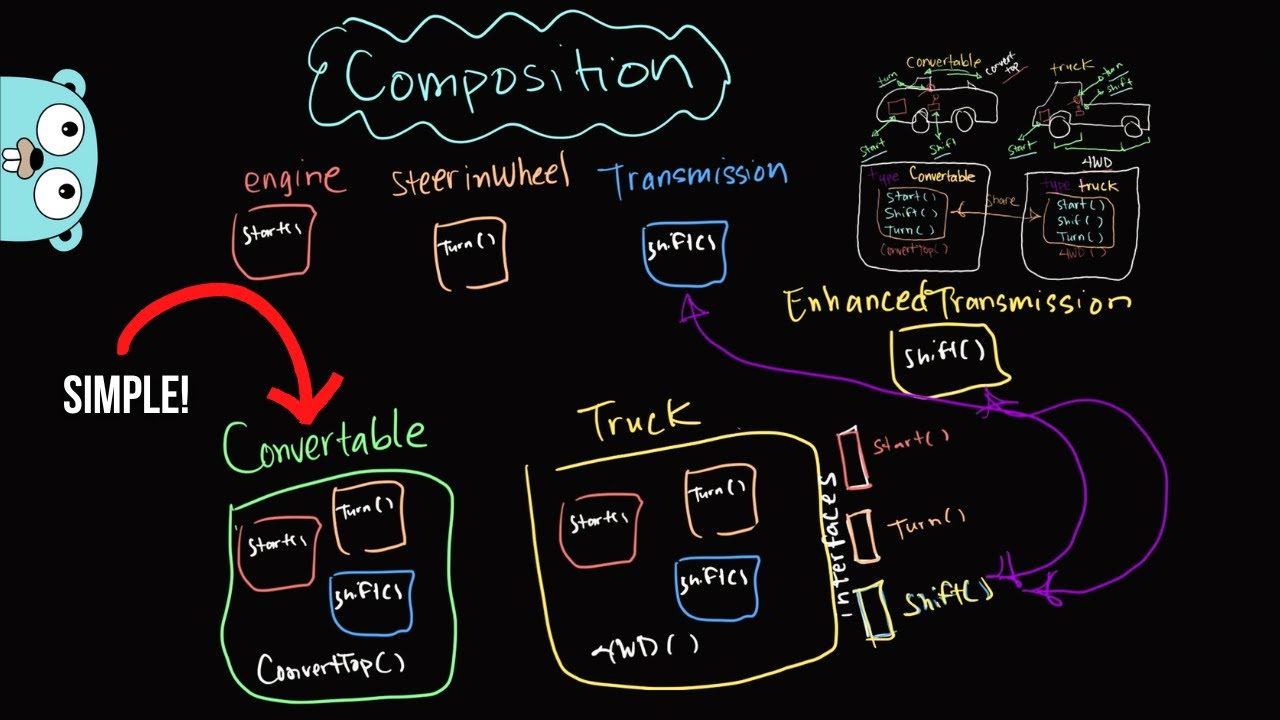 Composition
engine
steerinWheel
Transmission
Start()
Turn()
shift()
Convertable
turn
convert
top
start
shift
truck
turn
shift
start
4WD
type Convertable
Start()
Shift()
Turn()
ConvertTop()
share
type truck
Start()
Shif()
Turn()
4WD()
EnhancedTransmission
Shift()
SIMPLE!
Convertable
Start()
Turn()
shift()
ConvertTop()
Truck
Start()
Turn()
shift()
4WD()
interfaces
Start()
Turn()
Shift()